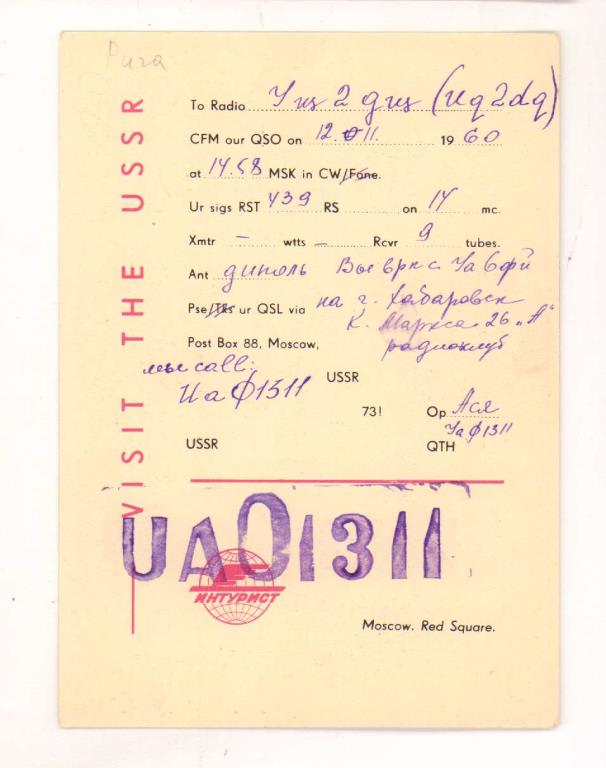 Рига
VISIT THE USSR
To Radio Уищ 2 дищ (uq2dq)
CFM our QSO on 12. 011. 1960
at 14.58 MSK in CW/Fone.
Ur sigs RST 439 RS on 14 mc.
Xmtr – wtts – Rcvr 9 tubes.
Ant диполь
Pse/Tks ur QSL via на г. Хабаровск
К. Маркса 26 „А"
Post Box 88, Moscow, радиоклуб
call:
UaФ1311
USSR
73! Op Ася
УаФ1311
USSR QTH
UA01311
ИНТУРИСТ
Moscow. Red Square.